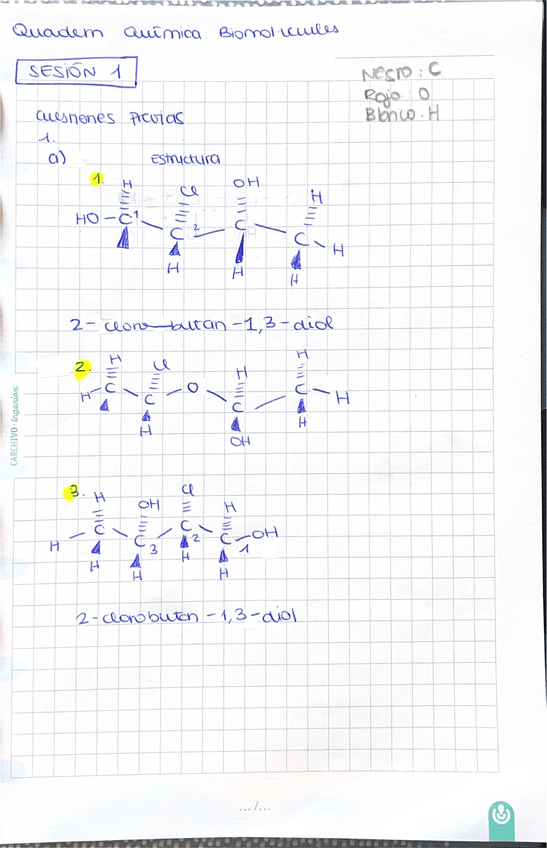 Quadern Química Biomolècules
SESIÓN 1
Negro: C
Rojo: O
Blanco: H
Cuestiones previas
1.
a) Estructura
1.
H Cl OH H
HO C 1 C 2 C C H
H H H
2-cloro-butan-1,3-diol
2.
H Cl H H
H C C O C C H
H OH H
3.
H OH Cl H
H C C 3 C 2 C 1 OH
H H H H
2-clorobutan-1,3-diol
CARCHIVO·Ingeniox
.../...